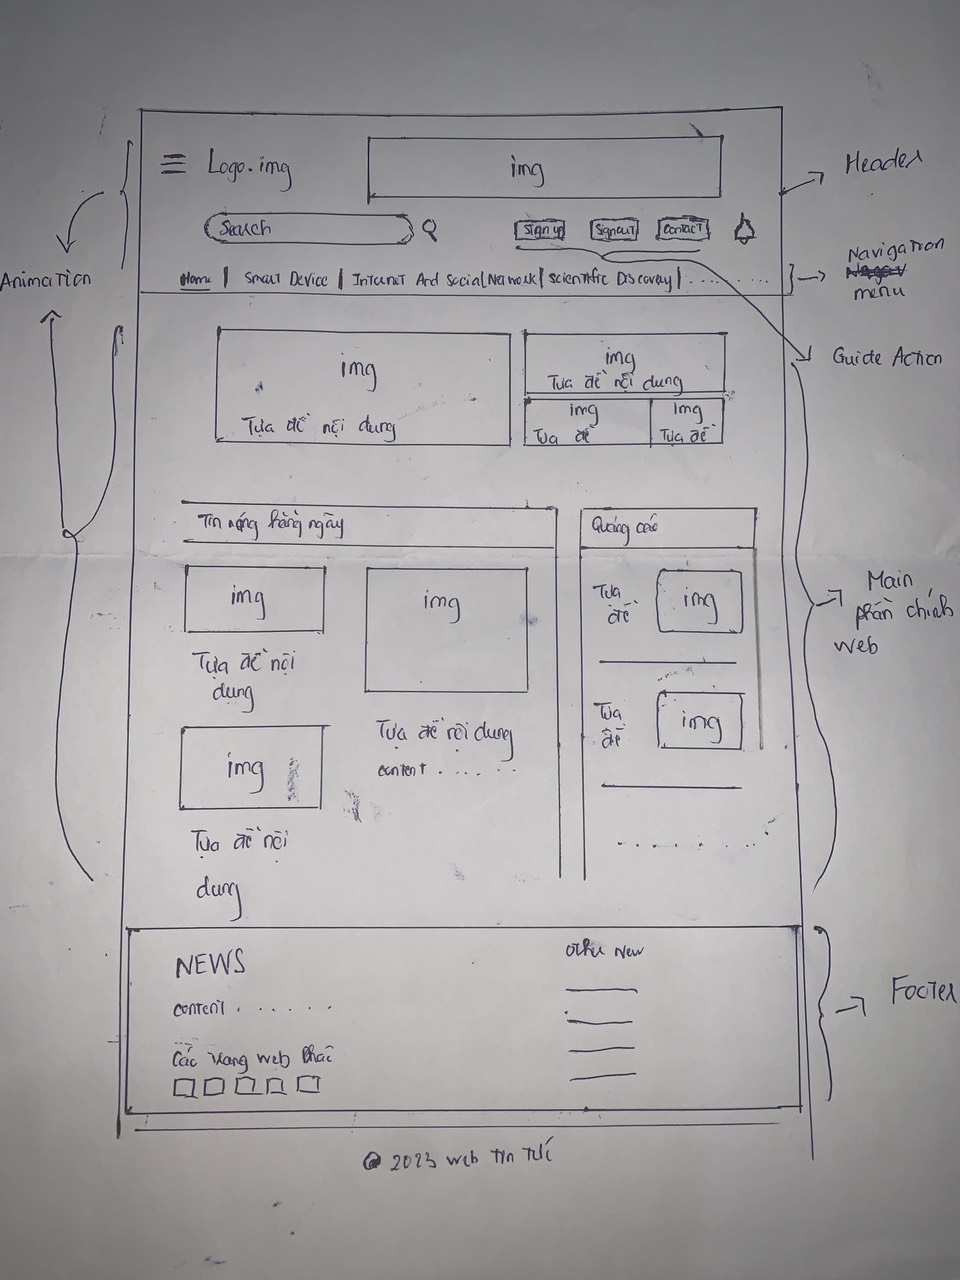 Logo.img
img
Header
Search
Sign up
Signout
Contact
Animation
Navigation
menu
Home | Smart Device | Internet And Social Network | Scientific Discovery | . . . . . .
Guide Action
img
Tựa đề nội dung
img
Tựa đề nội dung
img
Tựa đề
img
Tựa đề
Tin nóng hằng ngày
Quảng cáo
img
Tựa đề nội
dung
img
Tựa đề nội dung
content . . . . .
img
Tựa đề nội
dung
Tựa
đề
img
Tựa
đề
img
. . . . . . .
Main
phần chính
web
NEWS
content . . . . . .
Các trang web khác
Other New
Footer
@ 2023 web tin tức